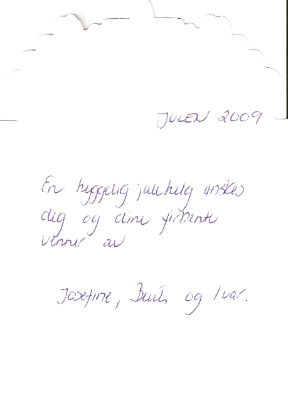 JULEN 2009
En hyggelig julehelg ønskes
deg og dine firbente
venner av
Josefine, og Ivar.